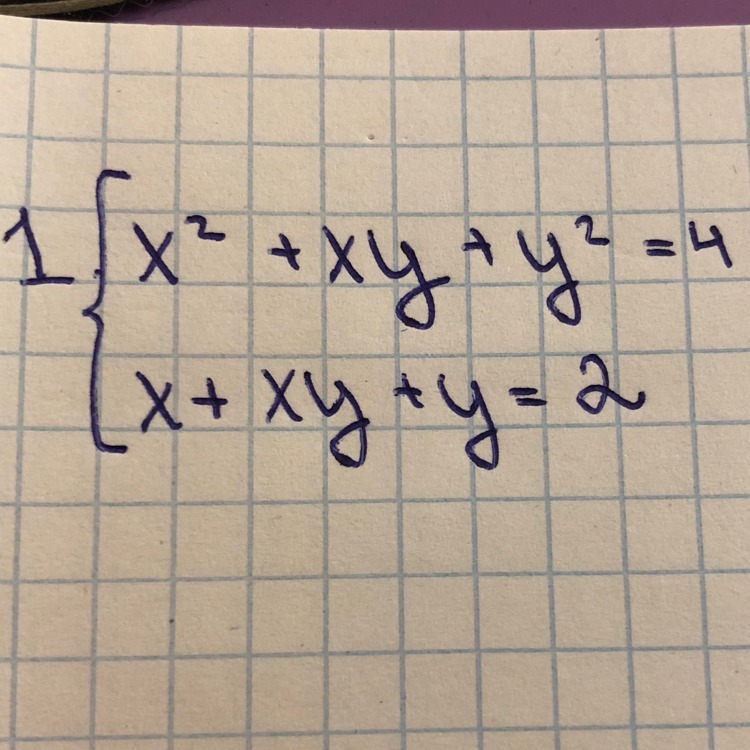 1 { x² + xy + y² = 4
x + xy + y = 2